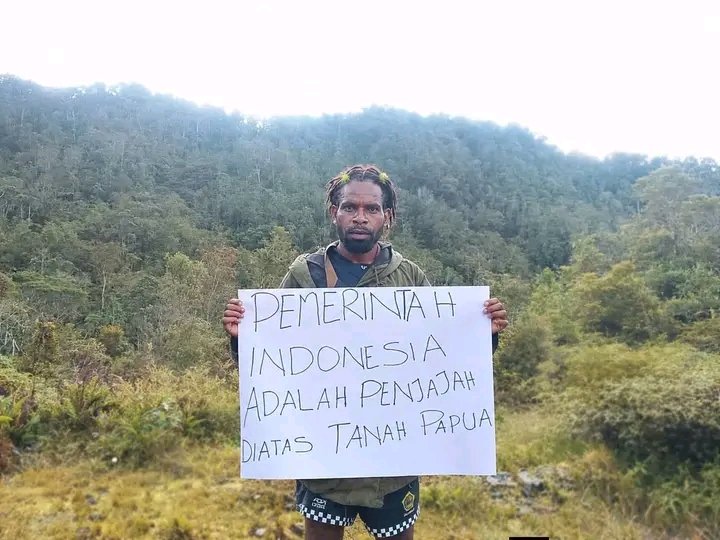 PEMERINTAH
INDONESIA
ADALAH PENJAJAH
DIATAS TANAH PAPUA